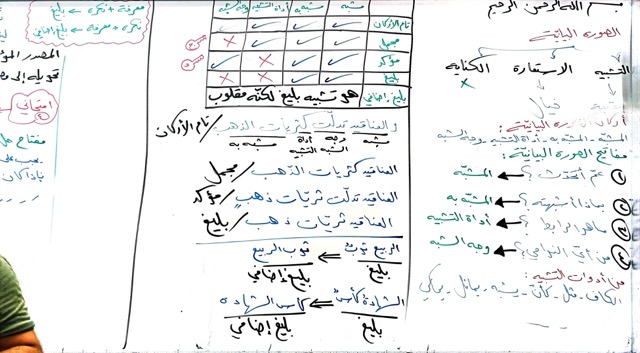 بسم الله الرحمن الرحيم
الصورة البيانية
التشبيه الاستعارة الكناية
خيال
أركان الصورة البيانية:
المشبه - المشبه به - أداة التشبيه - وجه الشبه
مفاتيح الصورة البيانية:
① عمّ أتحدث؟ ← المشبه
② بماذا أشبهته؟ ← المشبه به
③ ما هو الرابط؟ ← أداة التشبيه
④ من أيّ النواحي؟ ← وجه الشبه
من أدوات التشبيه:
الكاف - مثل - كأنّ - يشبه - يماثل - يحاكي
مشبه مشبه به أداة التشبيه وجه الشبه
تام الأركان ✓ ✓ ✓ ✓
مجمل ✓ ✓ ✓ ×
مؤكد ✓ ✓ × ✓
بليغ ✓ ✓ × ×
بليغ إضافي هو تشبيه بليغ لكنّه مقلوب
والعناقيد تدلّت كثريات الذهب / تام الأركان
مشبه وجه الشبه أداة التشبيه مشبه به
العناقيد كثريات الذهب / مجمل
العناقيد تدلّت ثريّات ذهب / مؤكد
العناقيد ثريّات ذهب / بليغ
الربيع ثوبٌ ⇐ ثوب الربيع
بليغ بليغ إضافي
الشهادة كأسٌ ⇐ كأس الشهادة
بليغ بليغ إضافي
معرفة + نكرة ← بليغ
نكرة + معرفة ← بليغ إضافي
المصدر المؤ
تحويله إلى مص
امتحاني
مفتاح حل
يجب علي